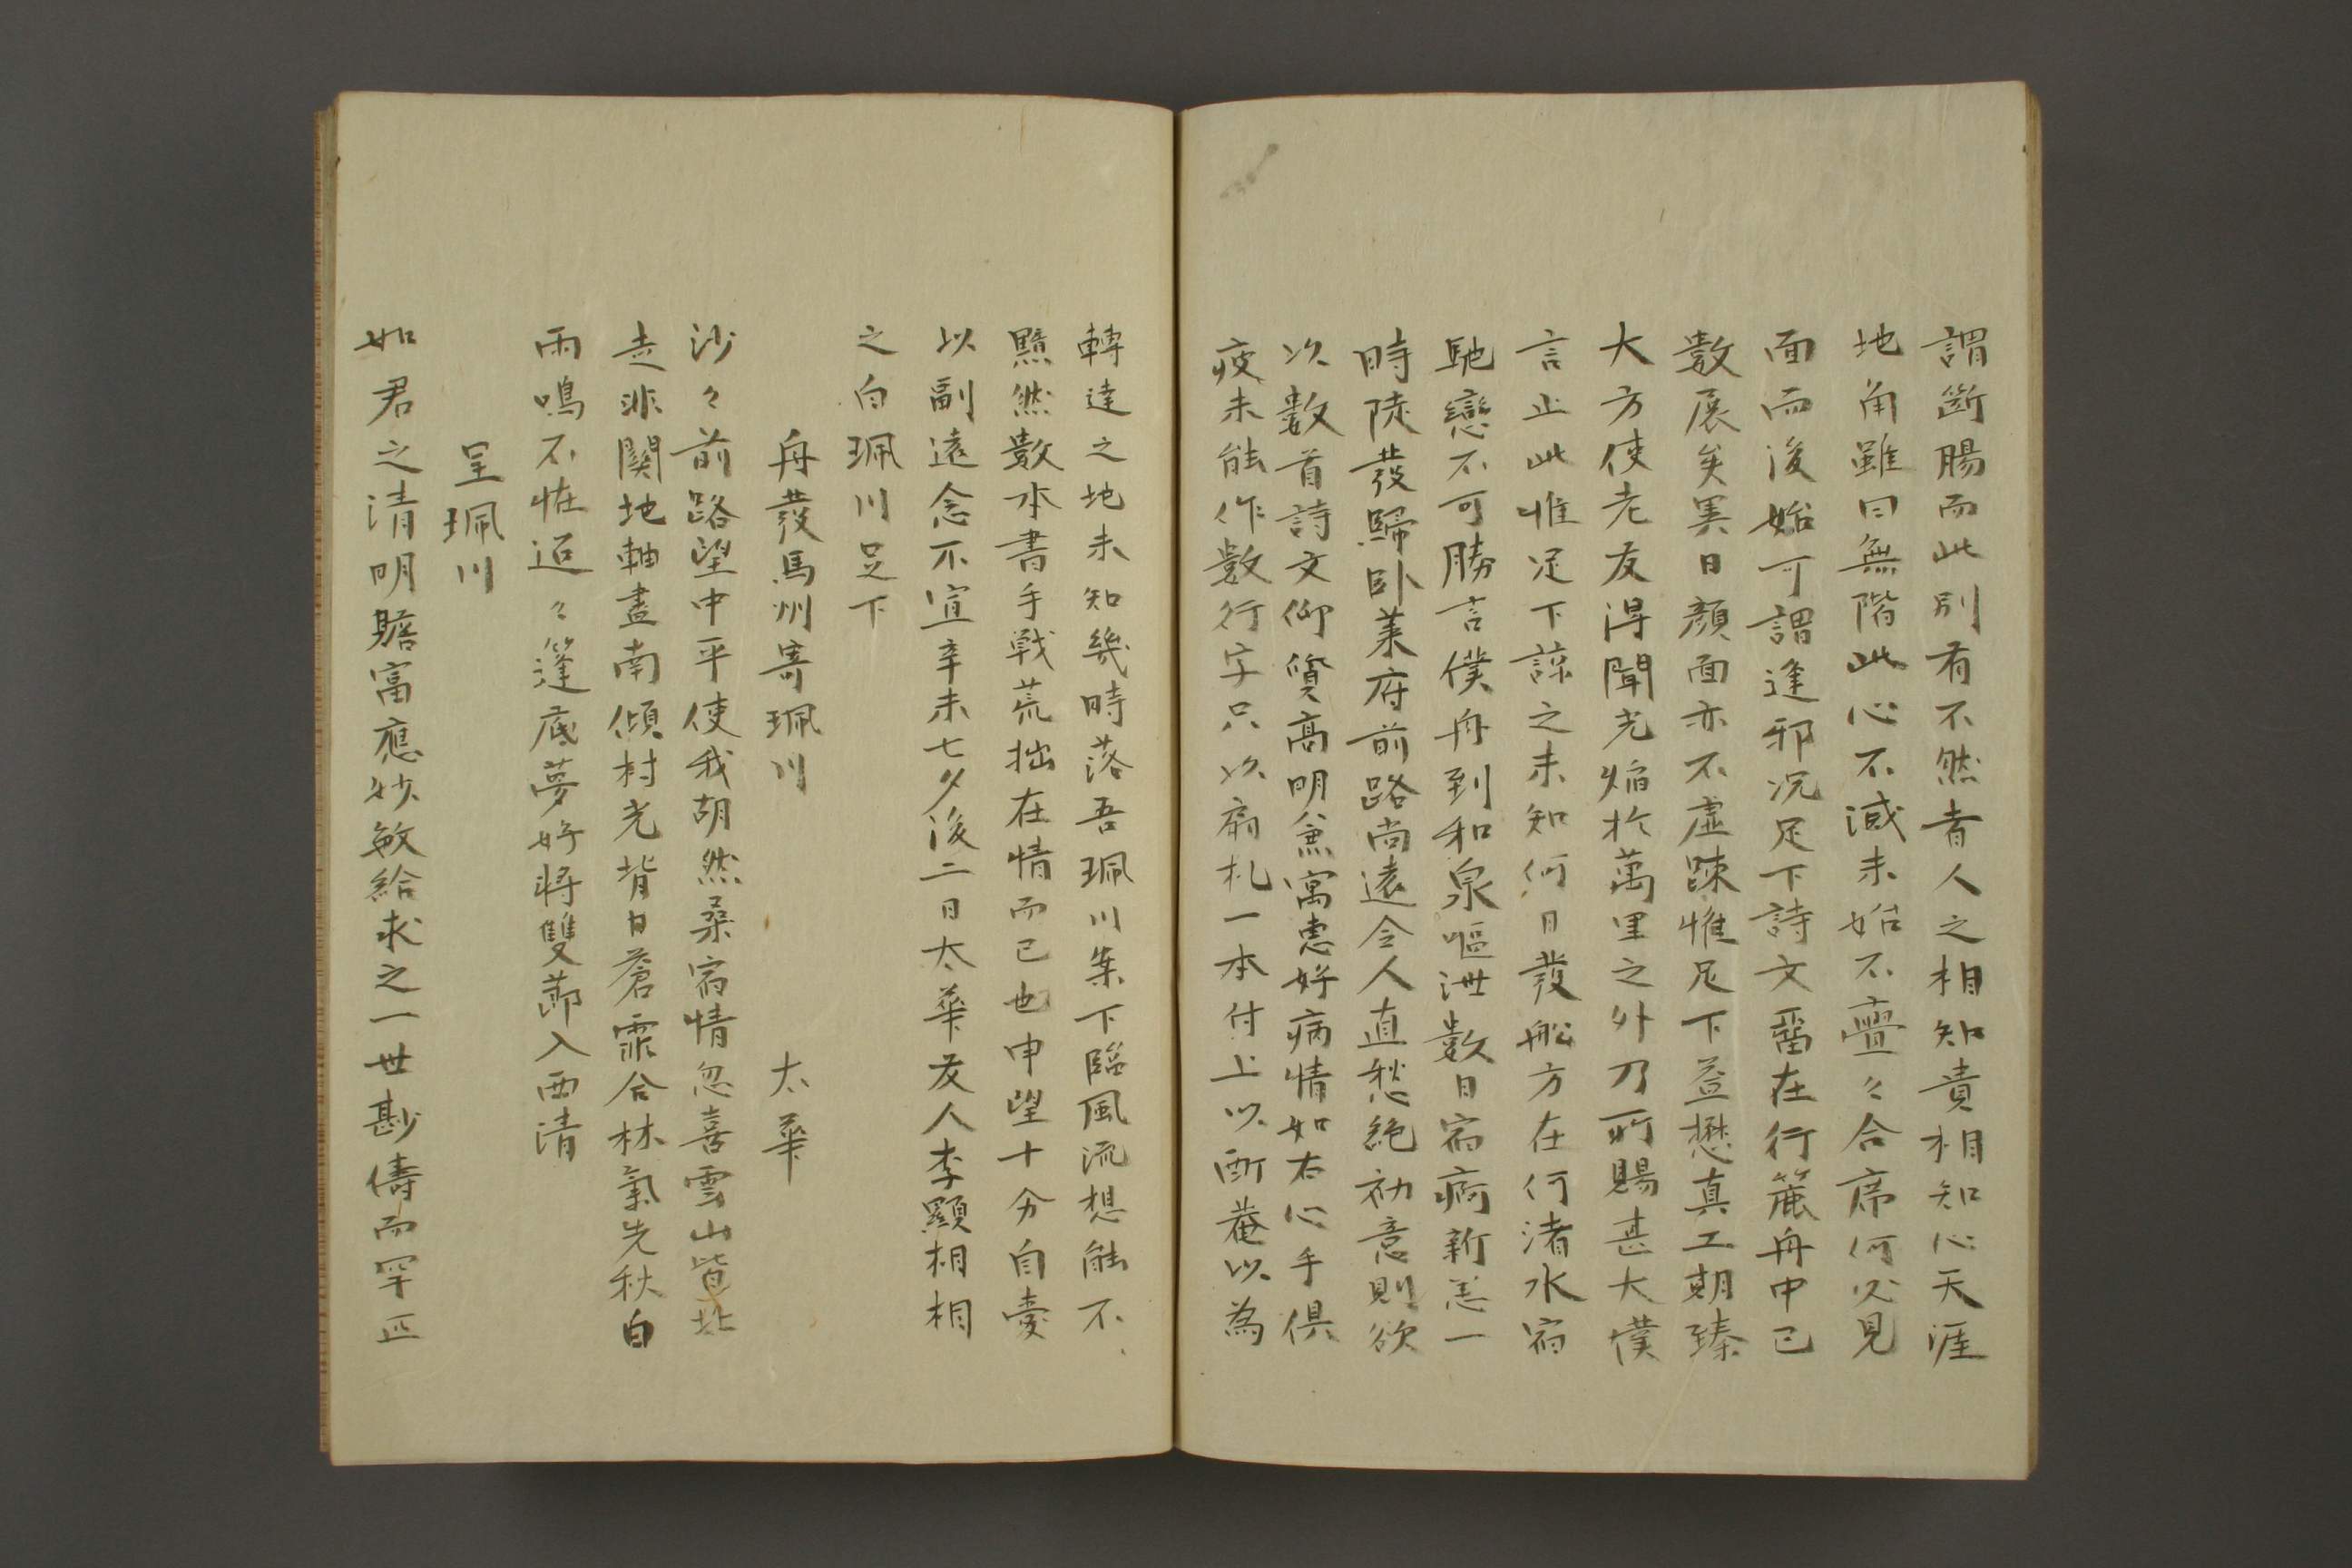 謂斷膓而此別有不然者人之相知貴相知心天涯
地角雖曰無階此心不滅未始不亹々合席何必見
面而後始可謂逢邪况足下詩文畱在行簏舟中已
數展矣異日顔面亦不虚踈惟足下益懋真工期臻
大方使老友得聞光焰於萬里之外乃所賜甚大僕
言止此惟足下諒之未知何日發船方在何渚水宿
馳戀不可勝言僕舟到和泉嘔泄數日宿痾新恙一
時陡發歸卧萊府前路尚遠令人直愁絶初意則欲
以數首詩文仰贊高明兼寓惠好病情如右心手俱
疲未能作數行字只以扇札一本付上以酬菴以為
轉達之地未知幾時落吾珮川案下臨風流想能不
黯然數本書手戰荒拙在情而已也申望十分自愛
以副遠念不宣辛未七夕後二日太華友人李顯相相
之白珮川足下
舟發馬州寄珮川　太華
沙々前路望中平使我胡然桑宿情忽喜雲山皆北
走非關地軸盡南傾村光背日蒼霏合林氣先秋白
雨鳴不恠迢々篷底夢好將雙節入西清
呈珮川
如君之清明贍富應妙敏給求之一世尠儔而罕匹